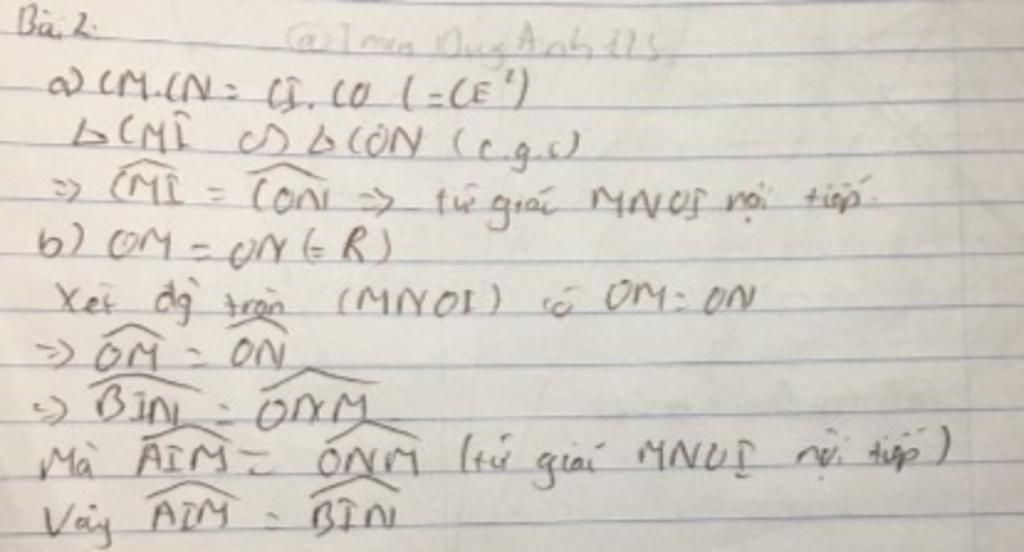 Bài 2.
a) CM.CN = CI.CO (=CE²)
Δ CMI ∽ Δ CON (c.g.c)
=> CMI = CON => tứ giác MNOI nội tiếp.
b) OM = ON (= R)
Xét đg tròn (MNOI) có OM = ON
=> OM = ON
=> BIN = ONM
Mà AIM = ONM (tứ giác MNOI nội tiếp)
Vậy AIM = BIN